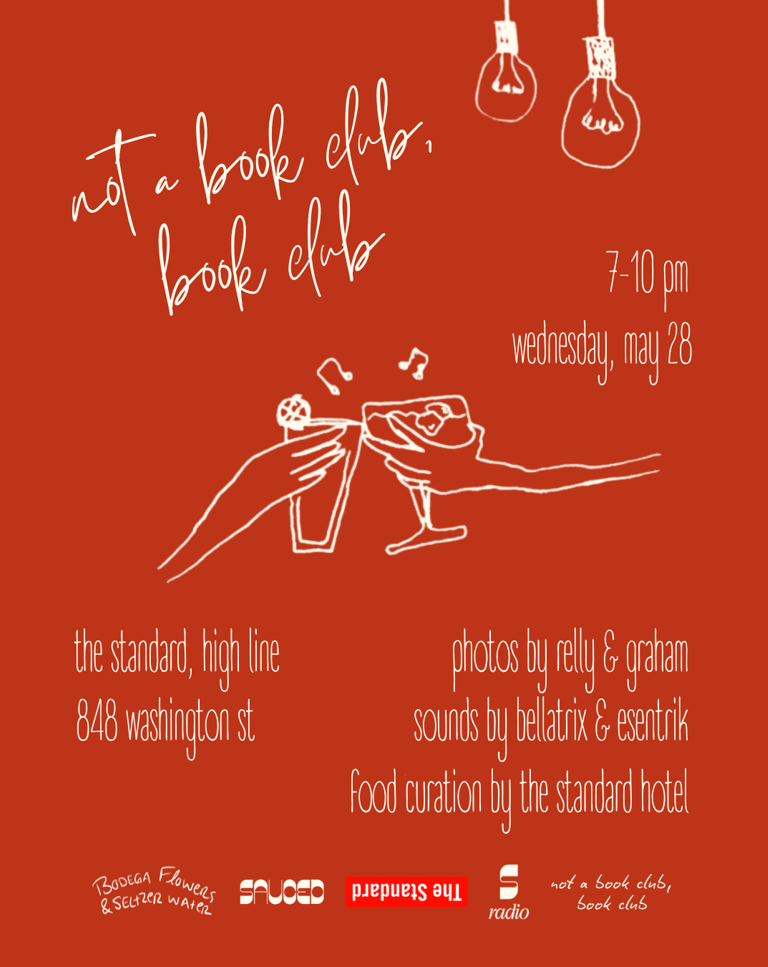 not a book club,
book club
7-10 pm
wednesday, may 28
the standard, high line
848 washington st
photos by relly & graham
sounds by bellatrix & esentrik
food curation by the standard hotel
Bodega Flowers
& Seltzer Water
SAUCED
The Standard
S
radio
not a book club,
book club